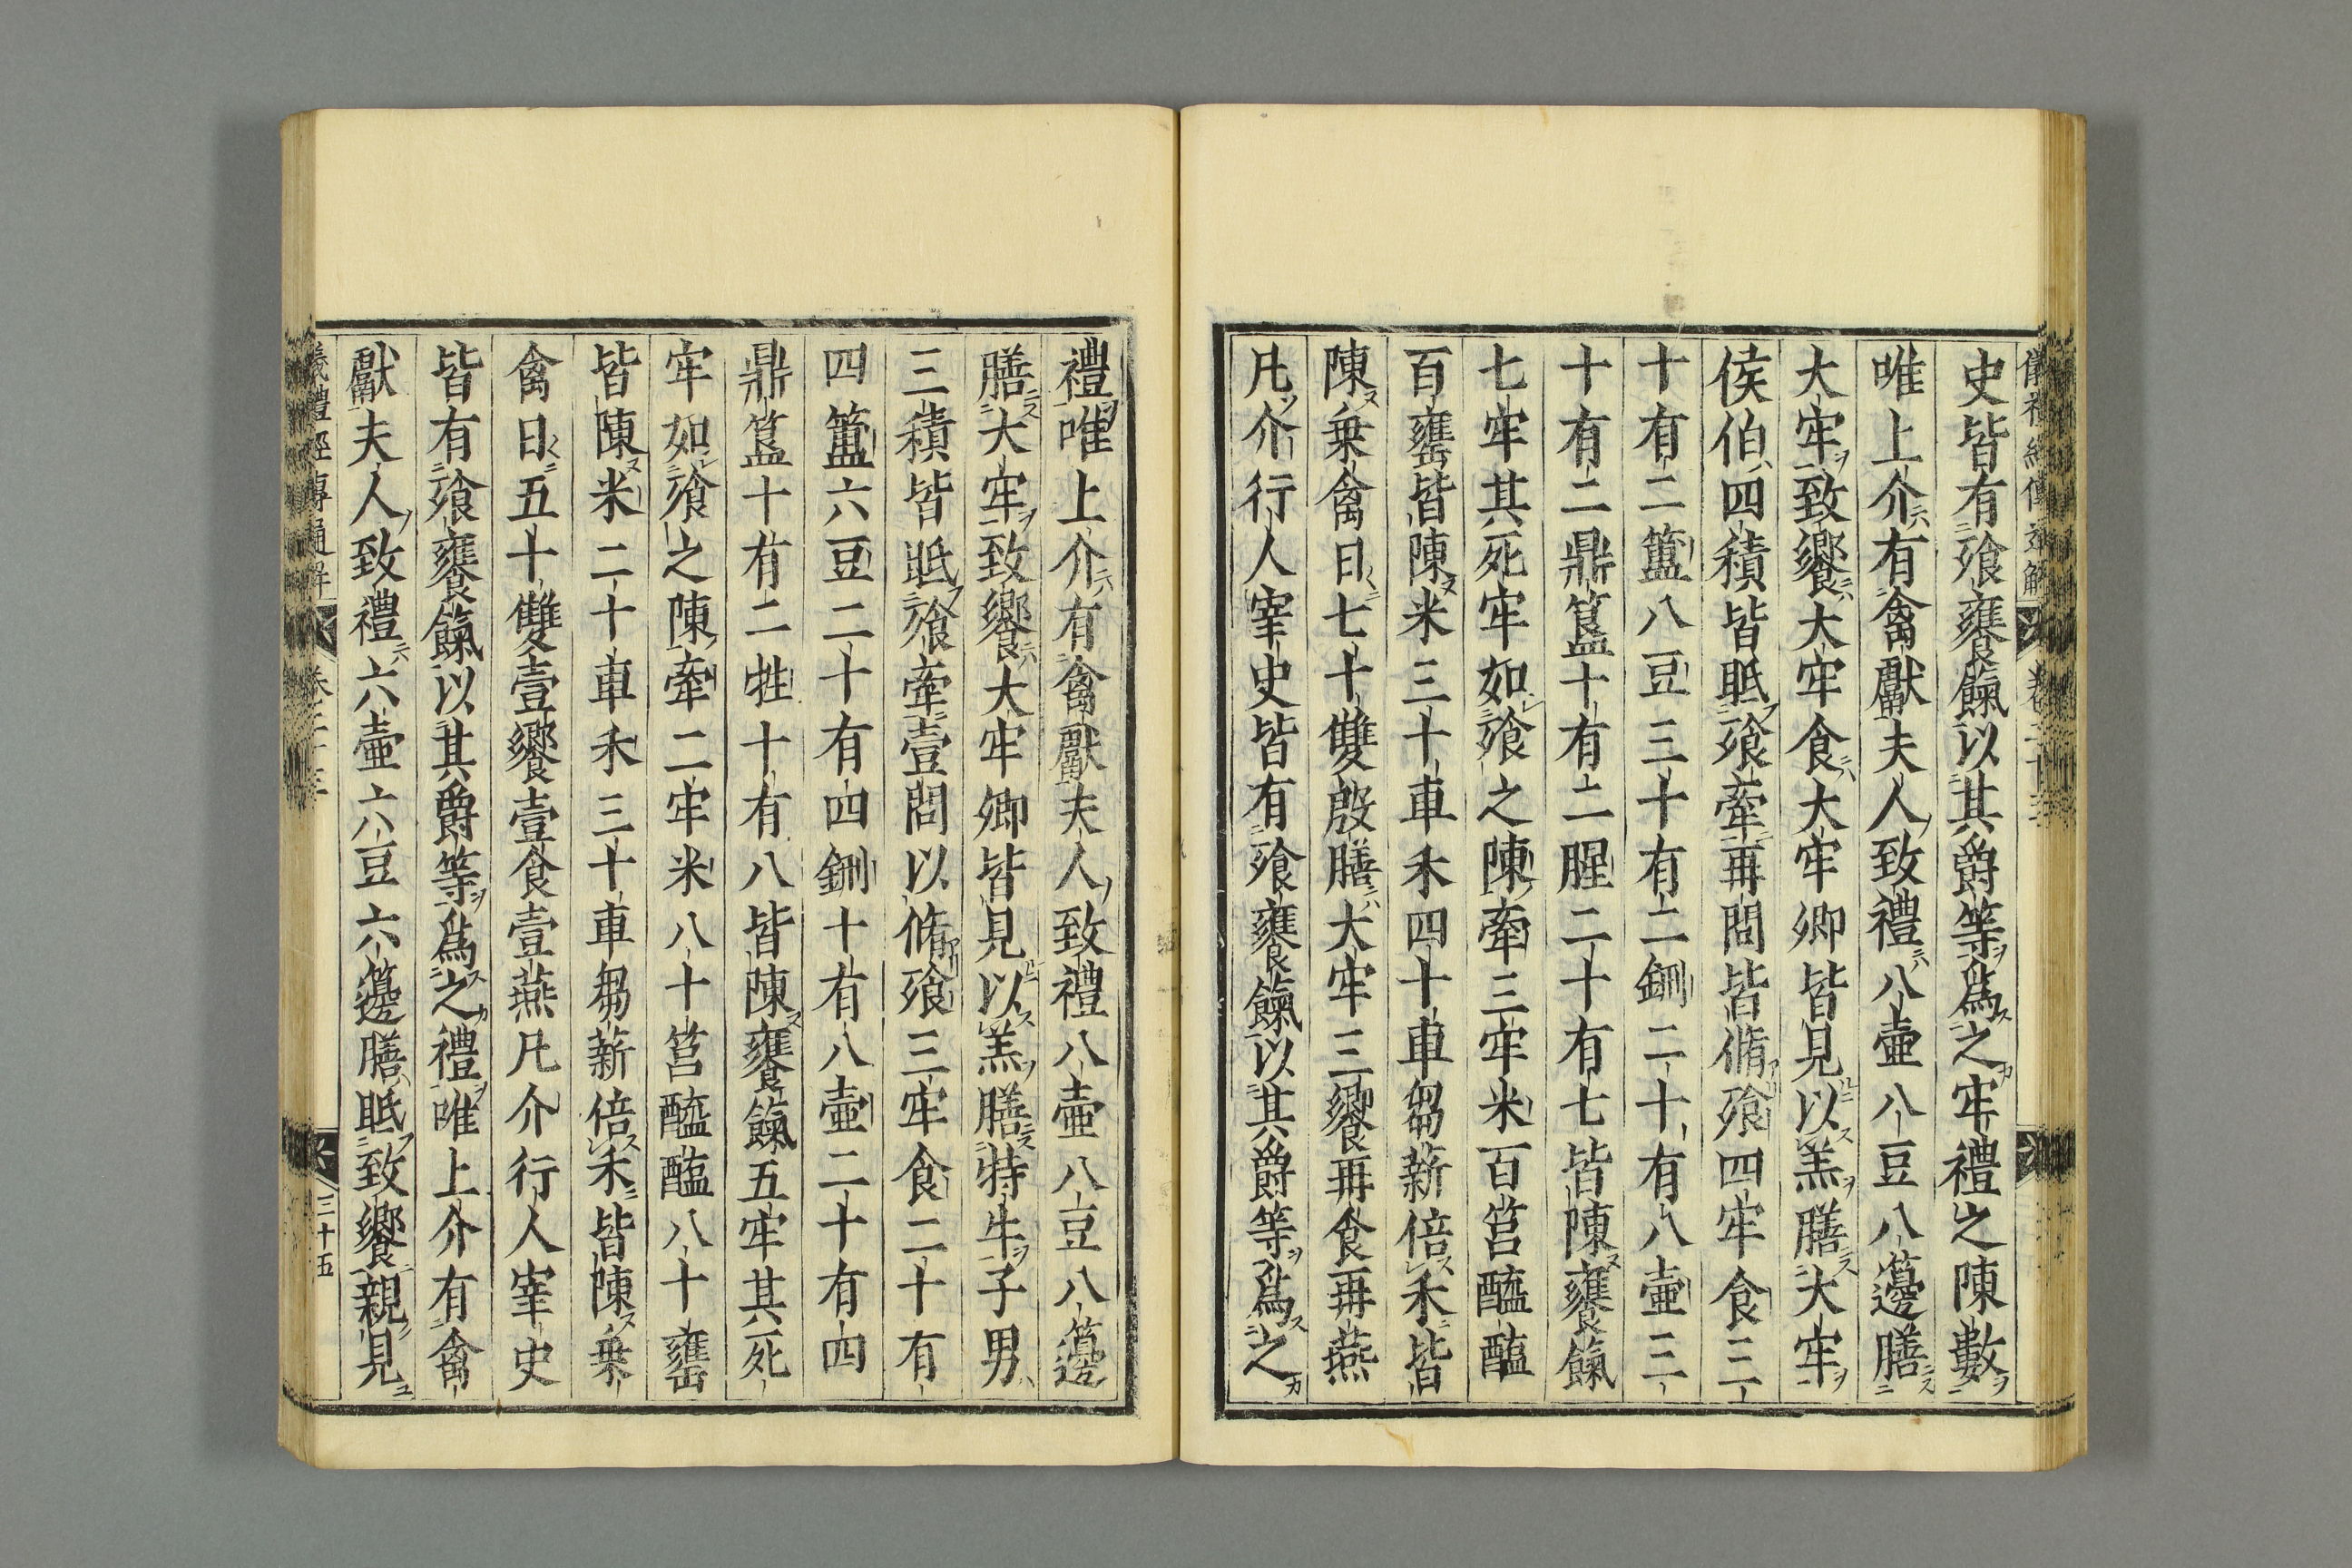 史皆有飧饔餼以其爵等爲之牢禮之陳數
唯上介有禽獻夫人致禮八壷八豆八籩膳
大牢致饗大牢食大牢卿皆見以羔膳大牢
侯伯四積皆眡飧牽再問皆脩飧四牢食三
十有二簠八豆三十有二鉶二十有八壷三
十有二鼎簋十有二腥二十有七皆陳饔餼
七牢其死牢如飧之陳牽三牢米百筥醯醢
百罋皆陳米三十車禾四十車芻薪倍禾皆
陳乗禽日七十雙殷膳大牢三饗再食再燕
凡介行人宰史皆有飧饔餼以其爵等爲之
禮唯上介有禽獻夫人致禮八壷八豆八籩
膳大牢致饗大牢卿皆見以羔膳特牛子男
三積皆眡飧牽壹問以脩飧三牢食二十有
四簠六豆二十有四鉶十有八壷二十有四
鼎簋十有二牲十有八皆陳饔餼五牢其死
牢如飧之陳牽二牢米八十筥醯醢八十罋
皆陳米二十車禾三十車芻薪倍禾皆陳乗
禽日五十雙壹饗壹食壹燕凡介行人宰史
皆有飧饔餼以其爵等爲之禮唯上介有禽
獻夫人致禮六壷六豆六籩膳眡致饗親見
儀禮經傳通解 卷二十三 三十五